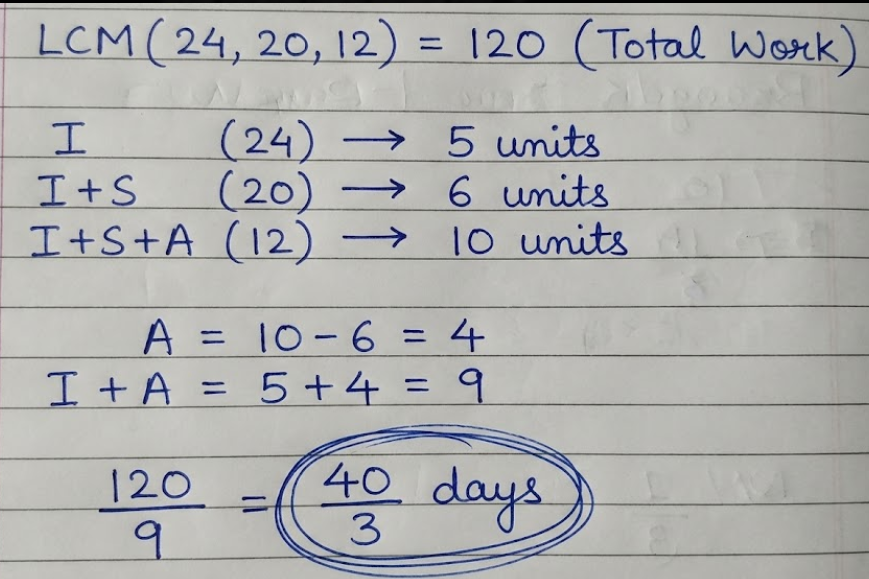 LCM (24, 20, 12) = 120 (Total Work)
I (24) → 5 units
I + S (20) → 6 units
I + S + A (12) → 10 units
A = 10 - 6 = 4
I + A = 5 + 4 = 9
120/9 = 40/3 days